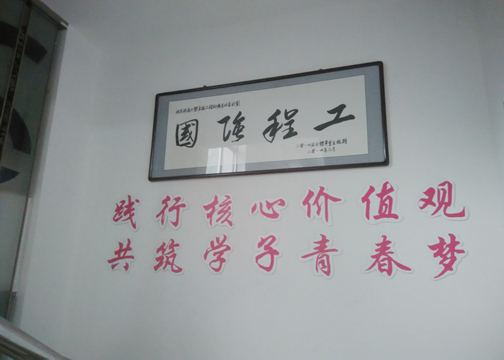 國強程工
践行核心价值观
共筑学子青春梦